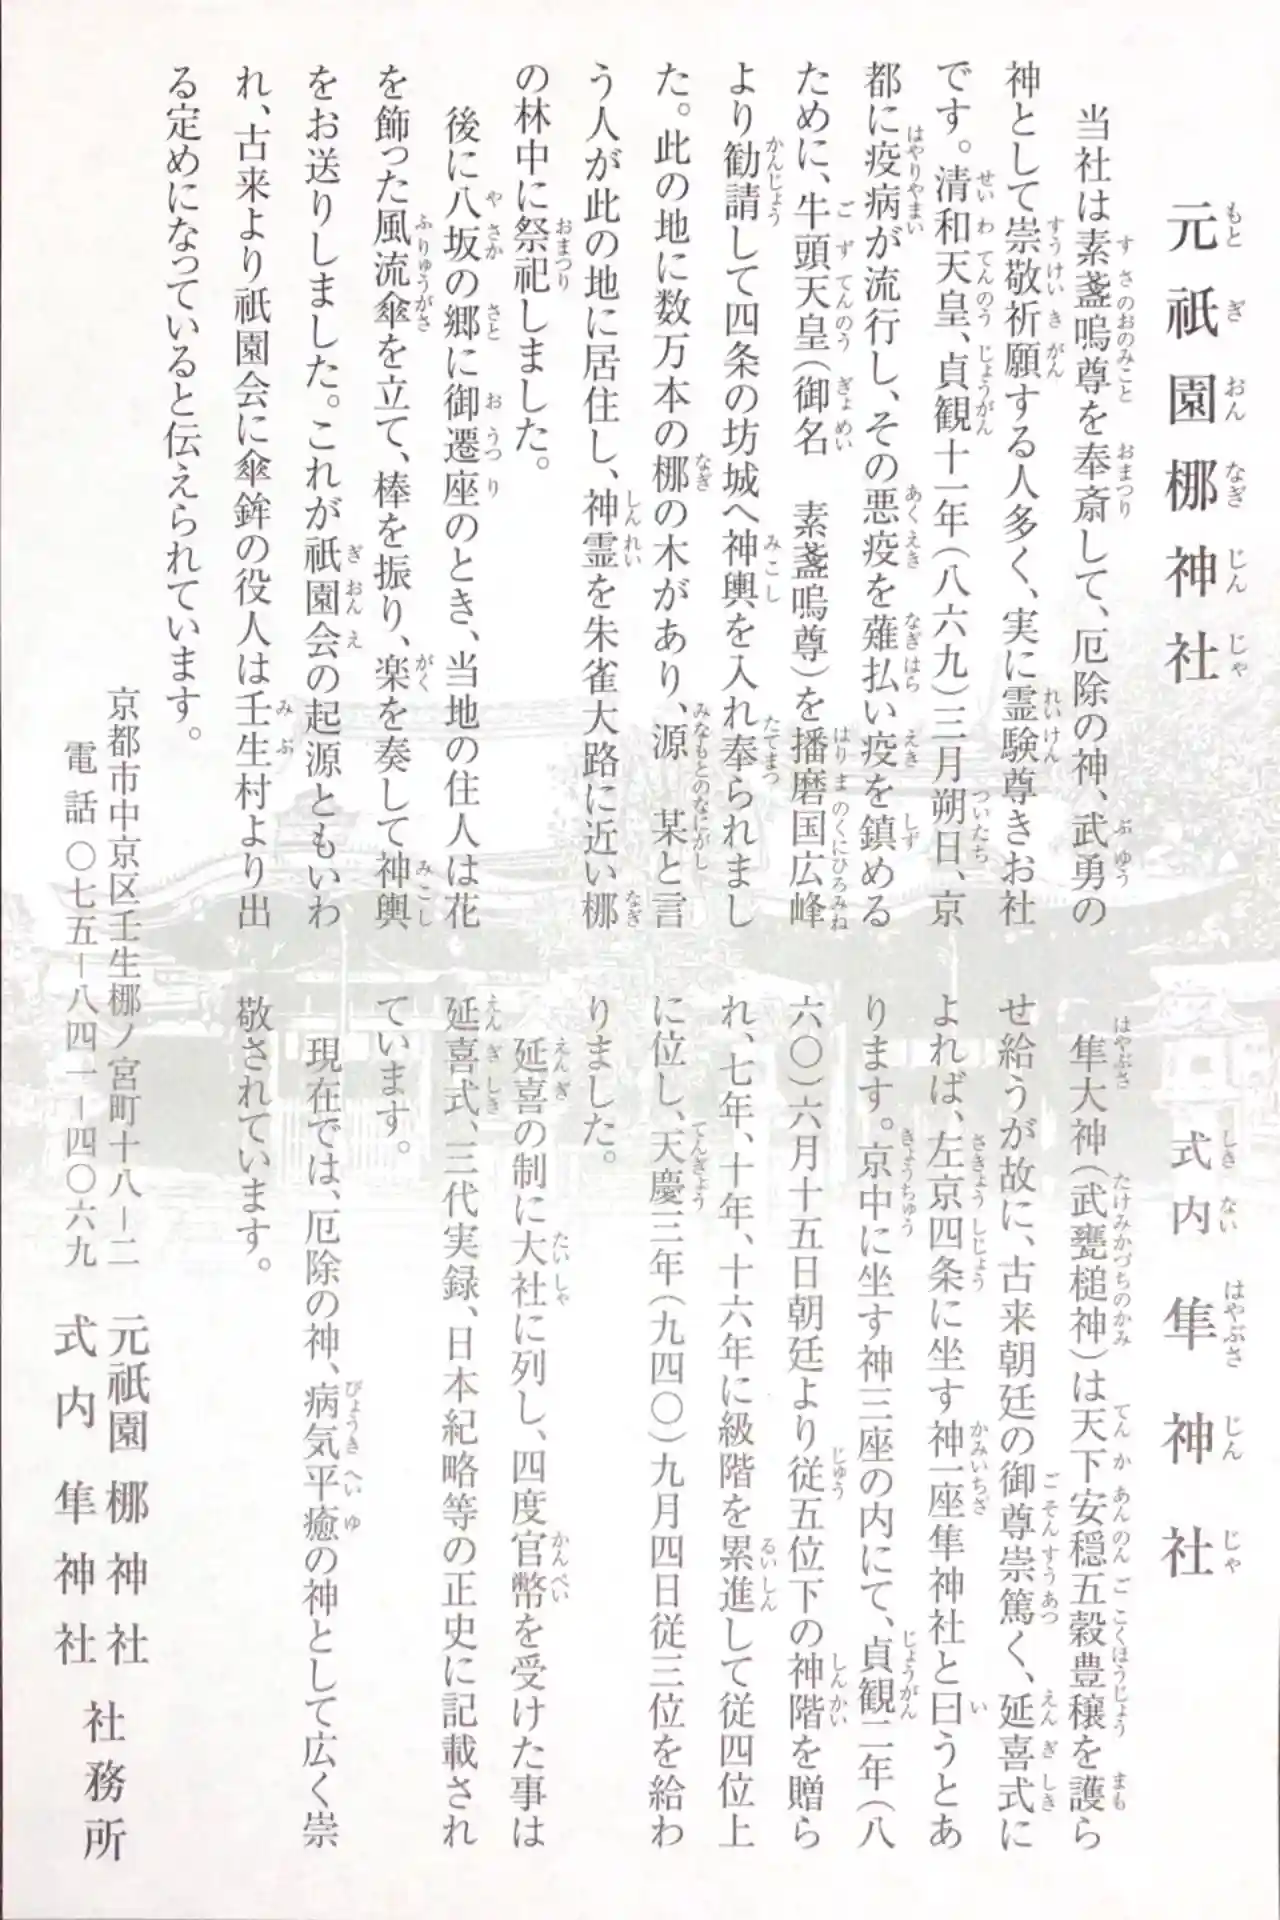 元祇園梛神社
当社は素盞嗚尊を奉斎して、厄除の神、武勇の
神として崇敬祈願する人多く、実に霊験尊きお社
です。清和天皇、貞観十一年（八六九）三月朔日、京
都に疫病が流行し、その悪疫を薙払い疫を鎮める
ために、牛頭天皇（御名　素盞嗚尊）を播磨国広峰
より勧請して四条の坊城へ神輿を入れ奉られまし
た。此の地に数万本の梛の木があり、源　某と言
う人が此の地に居住し、神霊を朱雀大路に近い梛
の林中に祭祀しました。
後に八坂の郷に御遷座のとき、当地の住人は花
を飾った風流傘を立て、棒を振り、楽を奏して神輿
をお送りしました。これが祇園会の起源ともいわ
れ、古来より祇園会に傘鉾の役人は壬生村より出
る定めになっていると伝えられています。
式内　隼神社
隼大神（武甕槌神）は天下安穏五穀豊穣を護ら
せ給うが故に、古来朝廷の御尊崇篤く、延喜式に
よれば、左京四条に坐す神一座隼神社と曰うとあ
ります。京中に坐す神三座の内にて、貞観二年（八
六〇）六月十五日朝廷より従五位下の神階を贈ら
れ、七年、十年、十六年に級階を累進して従四位上
に位し、天慶三年（九四〇）九月四日従三位を給わ
りました。
延喜の制に大社に列し、四度官幣を受けた事は
延喜式、三代実録、日本紀略等の正史に記載され
ています。
現在では、厄除の神、病気平癒の神として広く崇
敬されています。
京都市中京区壬生梛ノ宮町十八−二
電話〇七五−八四一−四〇六九
元祇園 梛神社
式内 隼神社
社務所